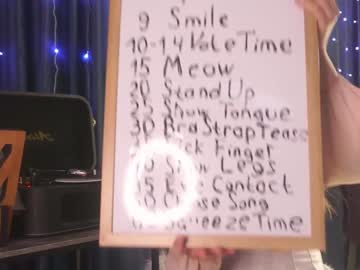 9 Smile
10-14 Vote Time
15 Meow
20 Stand Up
Show Tongue
30 Bra Strap Tease
Finger
Show Legs
Eye Contact
Song
Squeeze Time